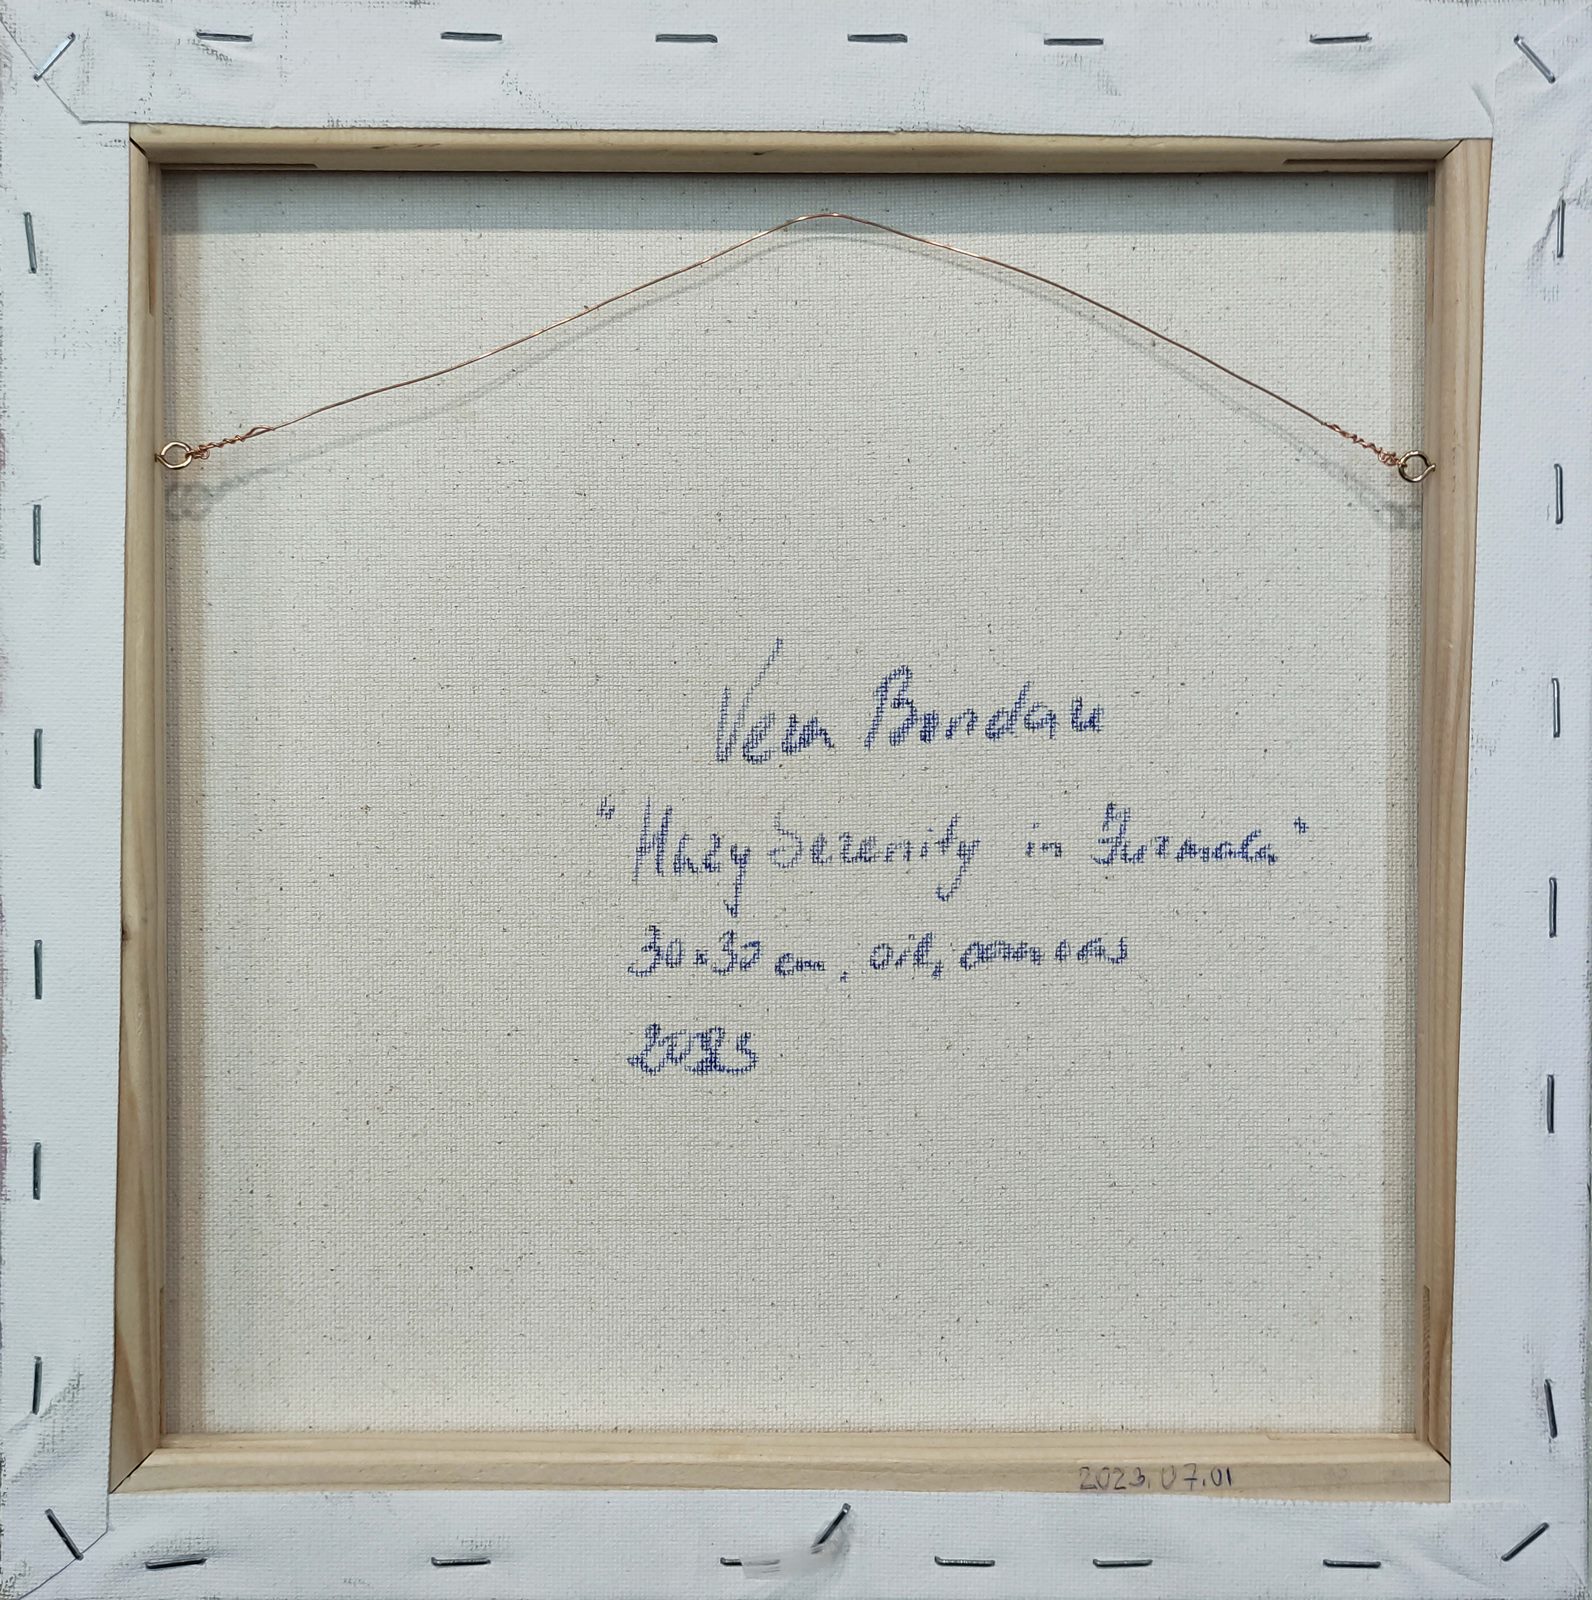 Vera Bondau
"Hazy Serenity in Jurmala"
30x30 cm, oil, canvas
2023
2023.07.01